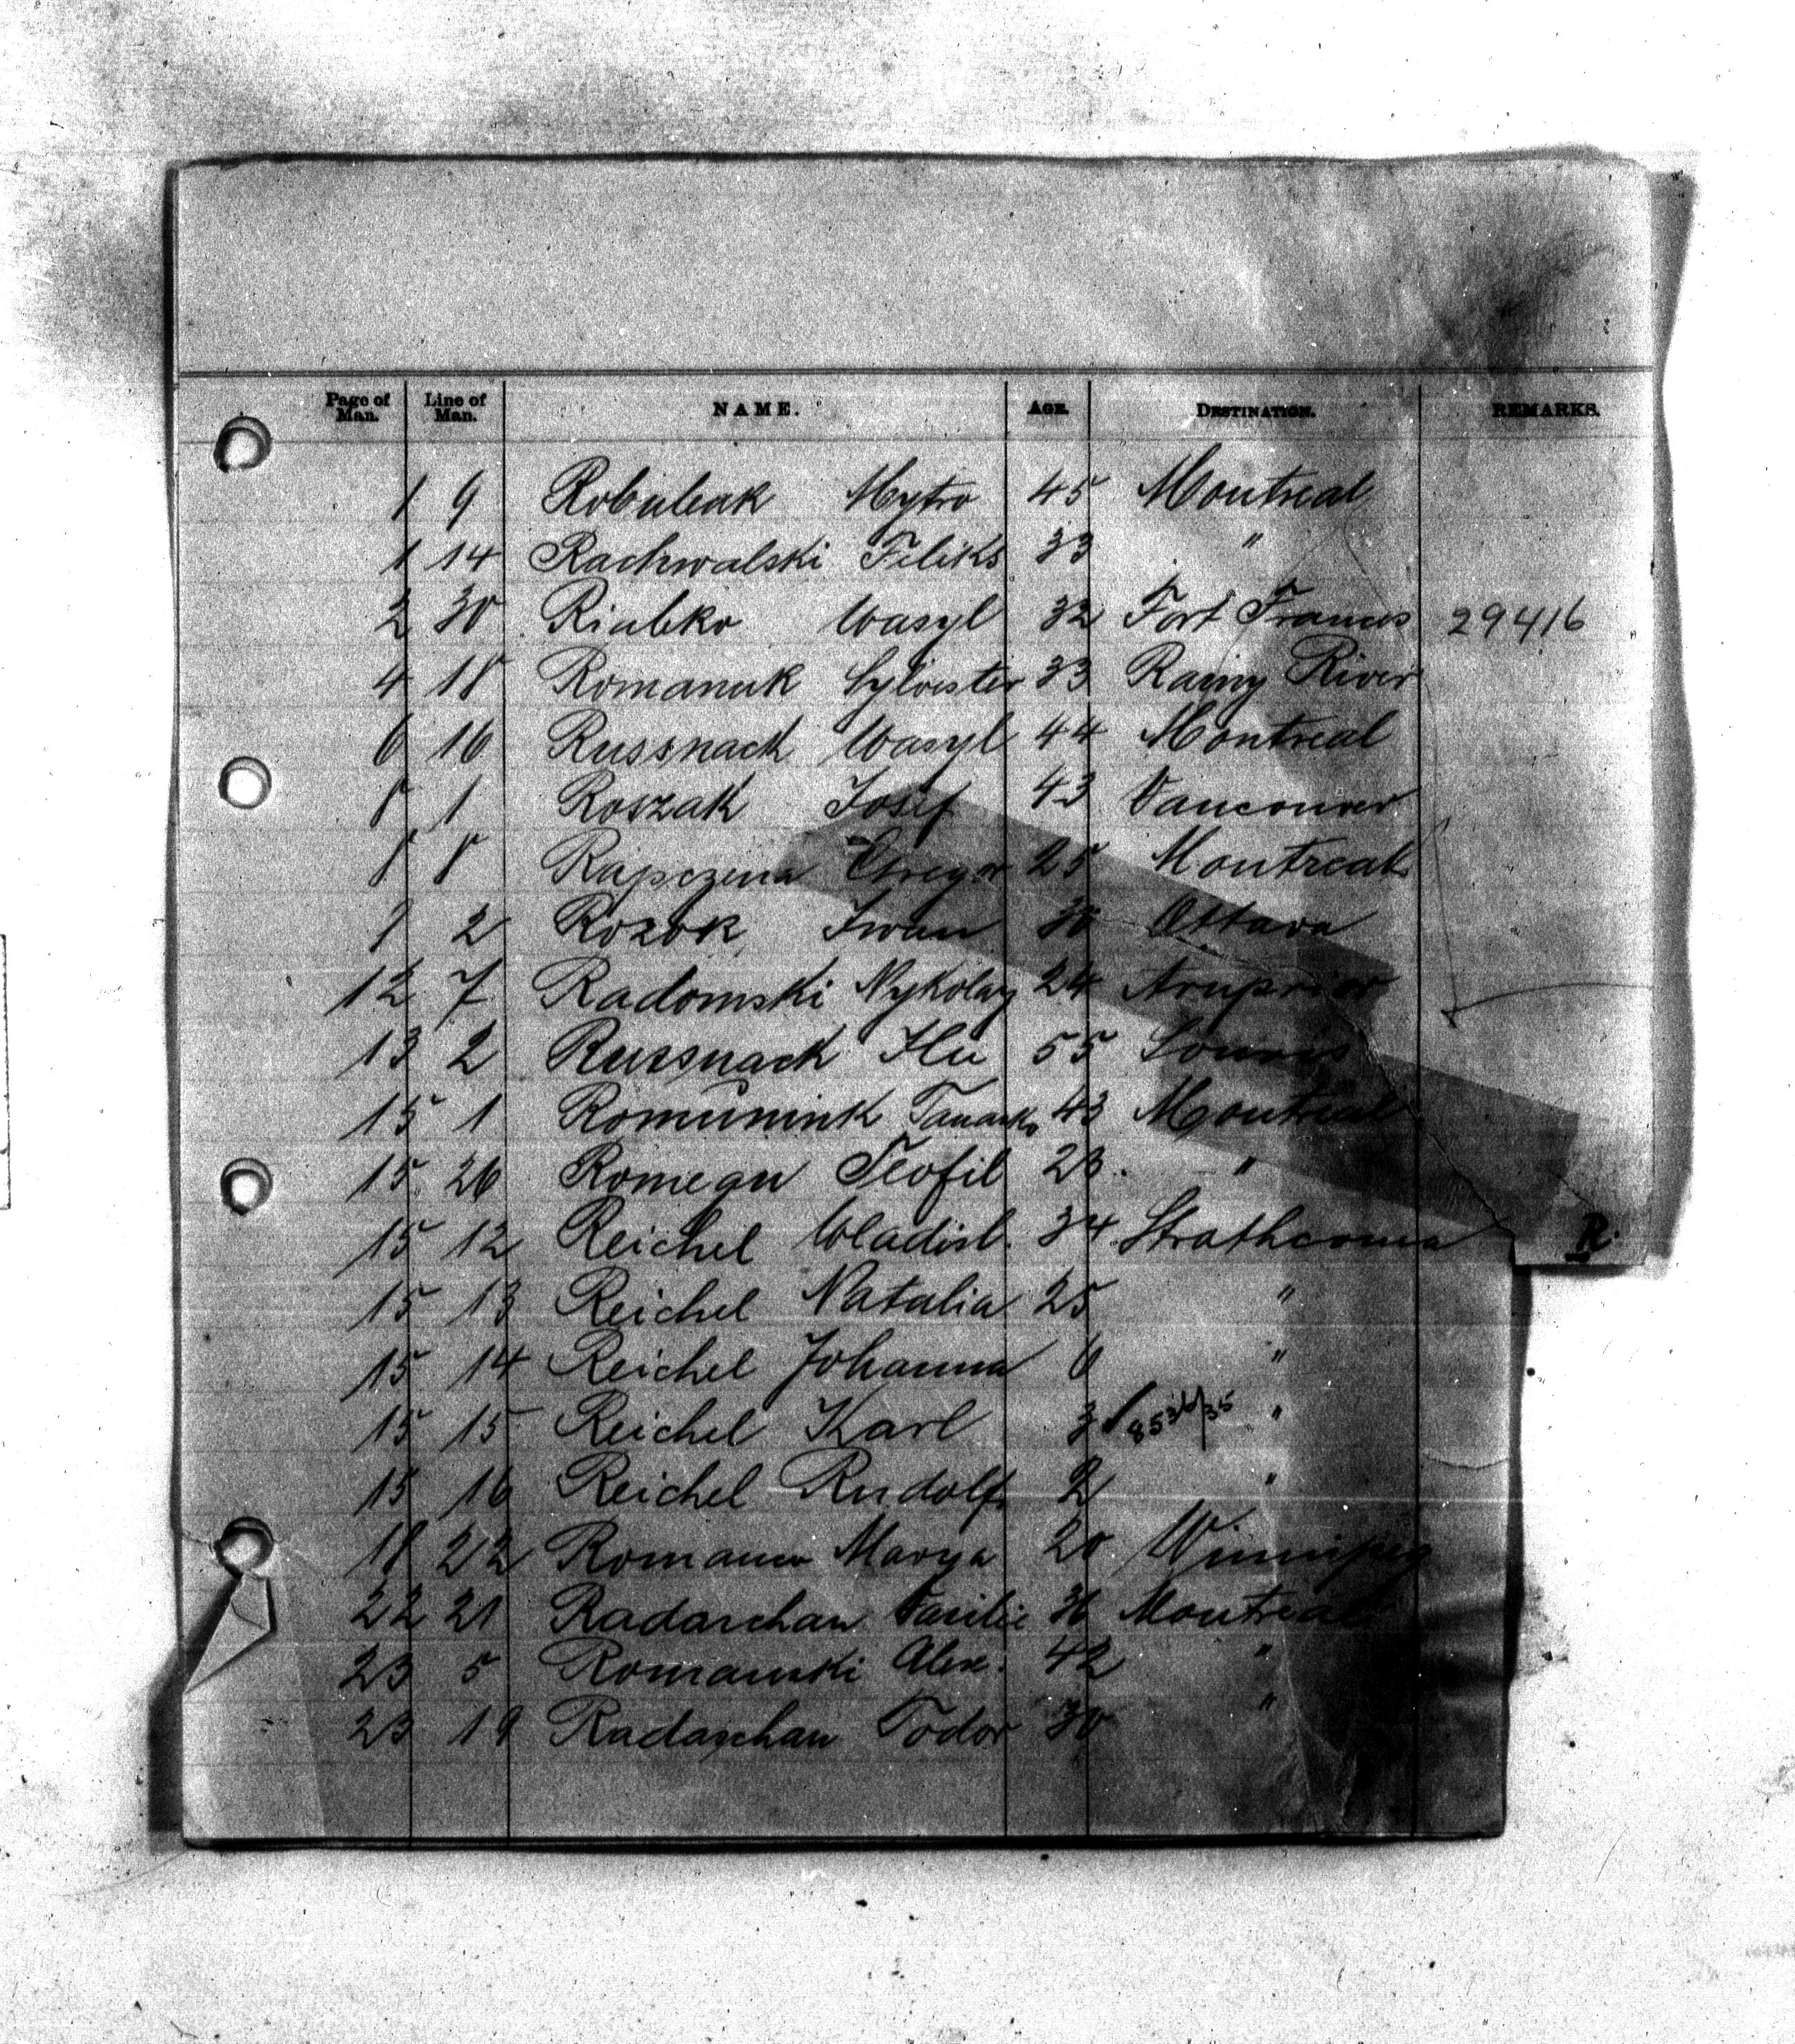 Page of Man. Line of Man. NAME. AGE. DESTINATION. REMARKS.
1 9 Robuleak Mytro 45 Montreal
1 14 Rachwalski Feliks 33 "
2 30 Riabko Wasyl 32 Fort Frances 29416
4 18 Romanuk Sylvester 33 Rainy River
6 16 Russnack Wasyl 44 Montreal
8 1 Roszak Josef 43 Vancouver
8 8 Rapczena Gregor 25 Montreal
9 2 Rozok Iwan 30 Ottava
12 7 Radomski Nykolay 24 Arnprior
13 2 Russnack Ilie 55 Souris
15 1 43 Montreal
15 26 Romegan Teofil 23 "
15 12 Reichel Wladisl. 34 Strathcona
R.
15 13 Reichel Natalia 25 "
15 14 Reichel Johanna 6 "
15 15 Reichel Karl 3 "
15 16 Reichel Rudolf 2 "
18 22 Marya 20 Winnipeg
22 21 Radaschan Vasilie 36 Montreal
23 5 Romanski Alex. 42 "
23 19 Radaschan Todor 30 "